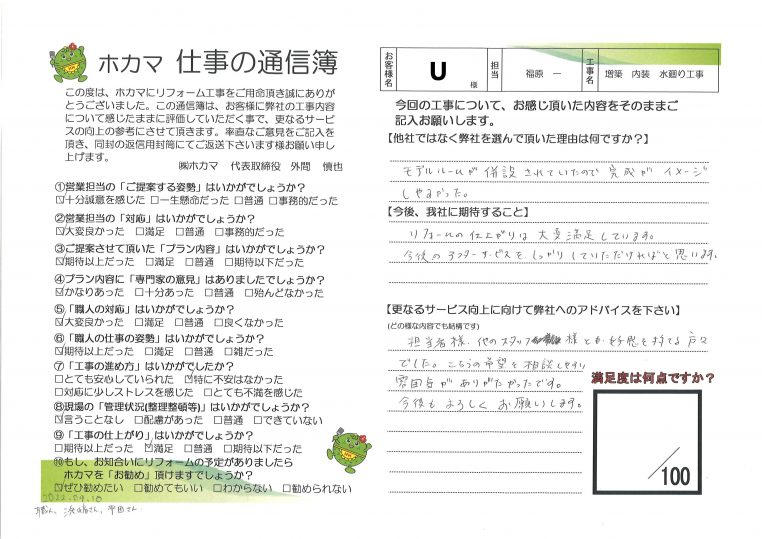 ホカマ 仕事の通信簿
この度は、ホカマにリフォーム工事をご用命頂き誠にありが
とうございました。この通信簿は、お客様に弊社の工事内容
について感じたままに評価していただく事で、更なるサービ
スの向上の参考にさせて頂きます。率直なご意見をご記入を
頂き、同封の返信用封筒にてご返送下さいます様お願い申し
上げます。
㈱ホカマ 代表取締役 外間 慎也
①営業担当の「ご提案する姿勢」はいかがでしょうか?
☑十分誠意を感じた □一生懸命だった □普通 □事務的だった
②営業担当の「対応」はいかがでしょうか?
☑大変良かった □満足 □普通 □事務的だった
③ご提案させて頂いた「プラン内容」はいかがでしょうか?
☑期待以上だった □満足 □普通 □期待以下だった
④プラン内容に「専門家の意見」はありましたでしょうか?
☑かなりあった □十分あった □普通 □殆んどなかった
⑤「職人の対応」はいかがでしょうか?
☑大変良かった □満足 □普通 □良くなかった
⑥「職人の仕事の姿勢」はいかがでしょうか?
☑期待以上だった □満足 □普通 □雑だった
⑦「工事の進め方」はいかがでしたか?
□とても安心していられた ☑特に不安はなかった
□対応に少しストレスを感じた □とても不満を感じた
⑧現場の「管理状況(整理整頓等)」はいかがでしょうか?
☑言うことなし □配慮があった □普通 □できていない
⑨「工事の仕上がり」はいかがでしょうか?
□期待以上だった ☑満足 □普通 □期待以下だった
⑩もし、お知合いにリフォームの予定がありましたら
ホカマを「お勧め」頂けますでしょうか?
☑ぜひ勧めたい □勧めてもいい □わからない □勧められない
2022.09.10
お客様名 U 様 担当 福原 一 工事名 増築 内装 水廻り工事
今回の工事について、お感じ頂いた内容をそのままご
記入お願いします。
【他社ではなく弊社を選んで頂いた理由は何ですか?】
モデルルームが併設されていたので完成がイメージ
しやすかった。
【今後、我社に期待すること】
リフォームの仕上がりは大変満足しています。
今後のアフターサービスをしっかりしていただければと思います。
【更なるサービス向上に向けて弊社へのアドバイスを下さい】
(どの様な内容でも結構です)
担当者様、他のスタッフ様とも好感を持てる
でした。こちらの希望を相談しやすい
雰囲気がありがたかったです。
今後もよろしくお願いします。
満足度は何点ですか?
/100